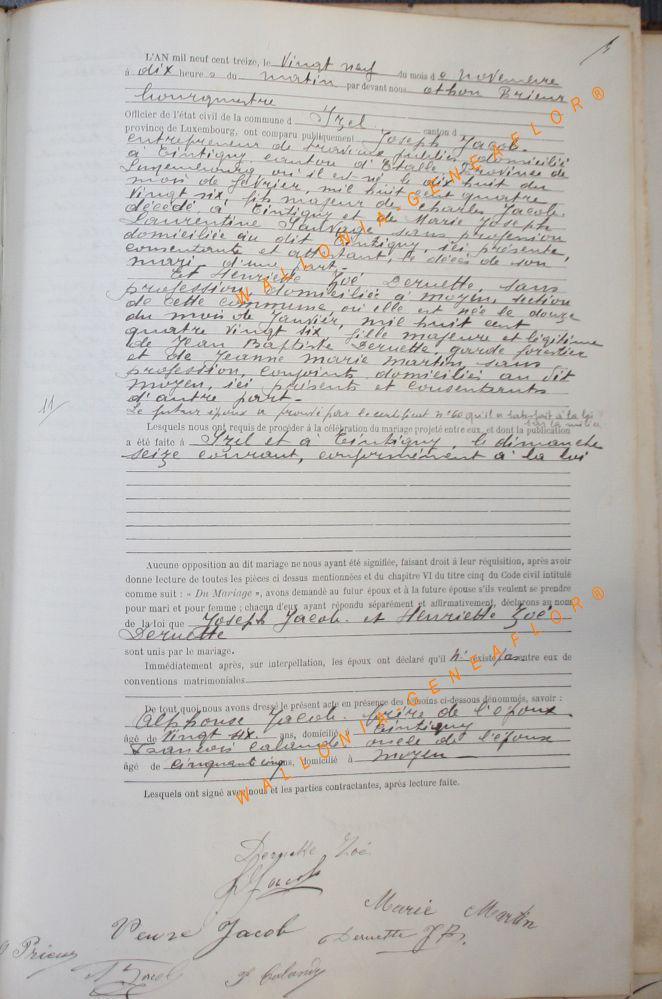 L'AN mil neuf cent treize, le vingt neuf du mois de novembre
à dix heures du matin par devant nous Othon Prieur
bourgmestre
Officier de l'état civil de la commune d'Izel canton d
province de Luxembourg, ont comparu publiquement Joseph Jacob
entrepreneur de travaux publics domicilié
à Tintigny canton d'Etalle Province de
Luxembourg où il est né le dix huit du
mois de février, mil huit cent quatre
vingt six, fils majeur de Charles Jacob
décédé à Tintigny et de Marie Joseph
Laurentine Sauvage sans profession
domiciliée au dit Tintigny, ici présente,
consentante et attestant le décès de son
mari d'une part.
Et Henriette Zoé Deruette, sans
profession domiciliée à Moyen, section
de cette commune, où elle est née le douze
du mois de Janvier, mil huit cent
quatre vingt six fille majeure et légitime
de Jean Baptiste Deruette, garde forestier
et de Jeanne Marie Martin, sans
profession, conjoints domiciliés au dit
Moyen, ici présents et consentants
d'autre part.
11/
Le futur époux a prouvé par le certificat qu'il a satisfait à la loi
sur la milice
Lesquels nous ont requis de procéder à la célébration du mariage projeté entre eux, et dont la publication
a été faite à Izel et à Tintigny, le dimanche
seize courant, conformément à la loi
Aucune opposition au dit mariage ne nous ayant été signifiée, faisant droit à leur réquisition, après avoir
donne lecture de toutes les pièces ci dessus mentionnées et du chapitre VI du titre cinq du Code civil intitulé
comme suit : « Du Mariage », avons demandé au futur époux et à la future épouse s'ils veulent se prendre
pour mari et pour femme ; chacun d'eux ayant répondu séparément et affirmativement, déclarons au nom
de la loi que Joseph Jacob et Henriette Zoé
Deruette
sont unis par le mariage.
Immédiatement après, sur interpellation, les époux ont déclaré qu'il n'existe pas entre eux de
conventions matrimoniales
De tout quoi nous avons dressé le présent acte en présence des témoins ci-dessous dénommés, savoir :
Alphonse Jacob frère de l'époux
âgé de vingt six ans, domicilié à Tintigny
François Calande oncle de l'épouse
âgé de cinquante cinq ans, domicilié à Moyen
Lesquels ont signé avec nous et les parties contractantes, après lecture faite.
Deruette Zoé
Jacob
Marie Martin
Veuve Jacob
Deruette J B.
O Prieur
A Jacob
F Calande
WALLONIA-GENEAFLOR®
WALLONIA-GENEAFLOR®